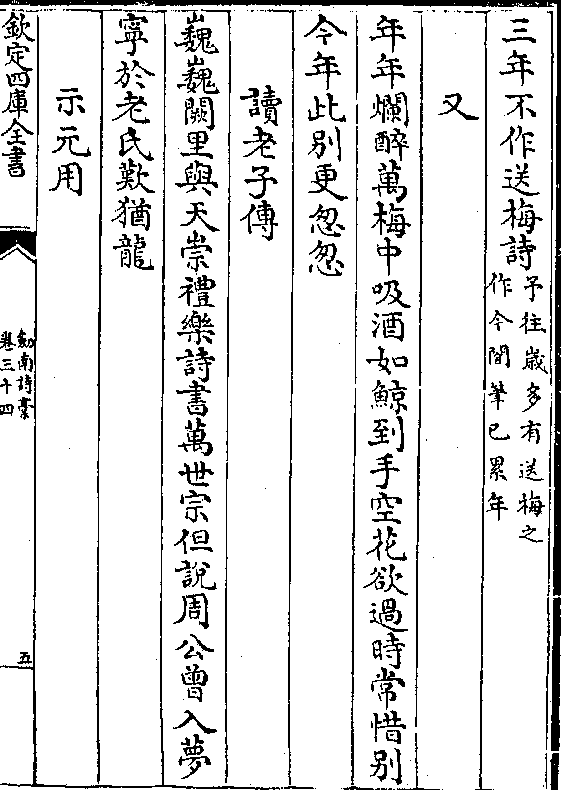 三年不作送梅詩予徃歲多有送梅之
作今閣筆已累年
又
年年爛醉萬梅中吸酒如鯨到手空花欲過時常惜别
今年此别更怱怱
讀老子傳
巍巍闕里與天崇禮樂詩書萬世宗但說周公曾入夢
寧於老氏歎猶龍
示元用
欽定四庫全書
劍南詩藁
卷三十四
五